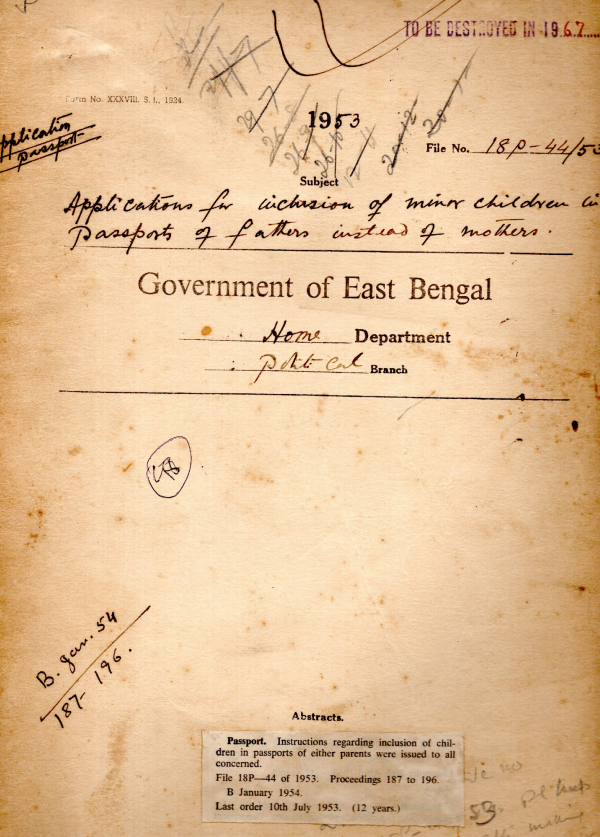 TO BE DESTROYED IN 1967
Form No. XXXVIII. S. I., 1924.
Application
Passport
1953
File No. 18P-44/53
Subject
Applications for inclusion of minor children in
Passports of fathers instead of mothers.
Government of East Bengal
Home Department
Political Branch
B. Jan. 54
187-196.
Abstracts.
Passport. Instructions regarding inclusion of chil-
dren in passports of either parents were issued to all
concerned.
File 18P—44 of 1953. Proceedings 187 to 196.
B January 1954.
Last order 10th July 1953. (12 years.)
53.